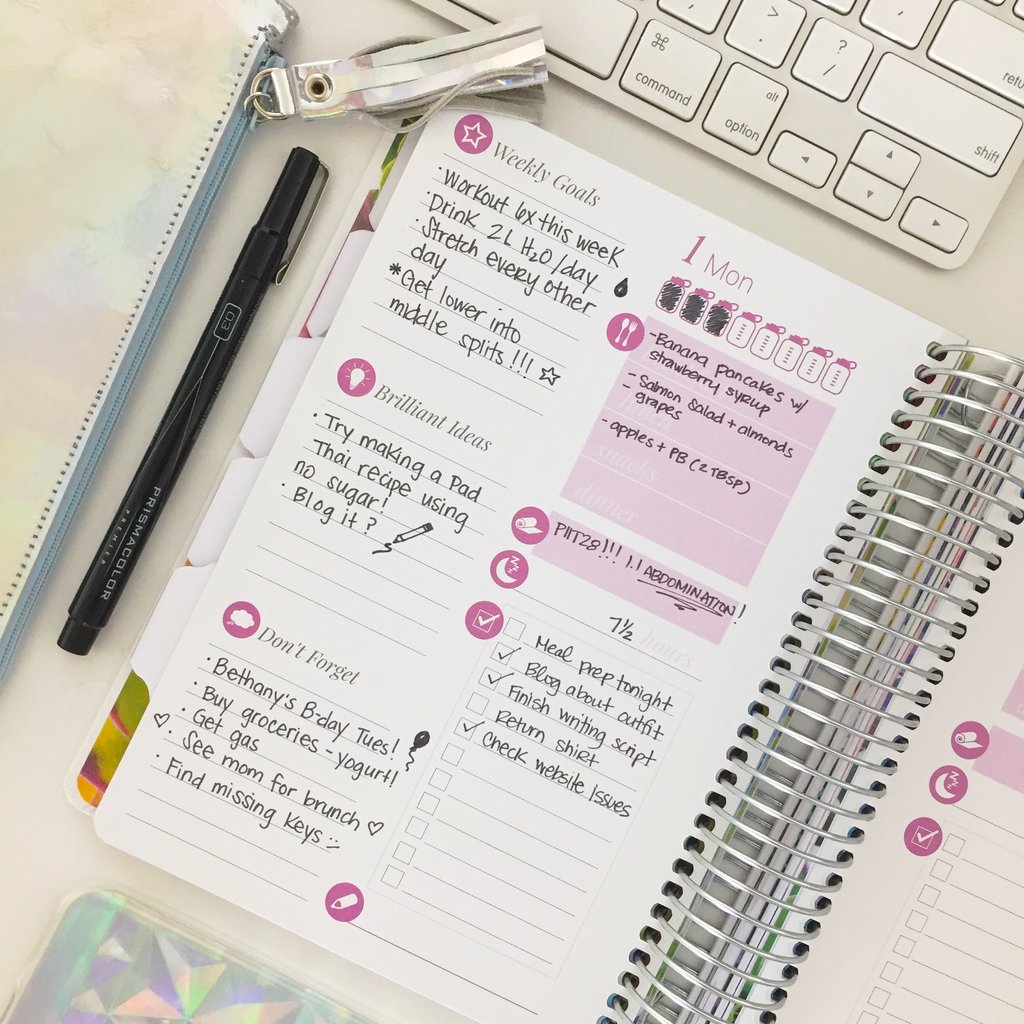 command
alt
option
return
shift
> .
? /
03
PRISMACOLOR
PREMIER
Weekly Goals
·Workout 6x this week
·Drink 2L H₂O/day
·Stretch every other
day
*Get lower into
middle splits!!!
Brilliant Ideas
·Try making a Pad
Thai recipe using
no sugar!
·Blog it?
Don't Forget
·Bethany's B-day Tues!
·Buy groceries - yogurt!
·Get gas
♡·See mom for brunch ♡
·Find missing keys
1 Mon
-Banana pancakes w/
strawberry syrup
- Salmon salad + almonds
- grapes
-apples + PB (2 TBSP)
snacks
dinner
PIIT28!!! 1.1 ABDOMINATION!
7½ hours
Meal prep tonight
✓ Blog about outfit
✓ Finish writing script
Return shirt
✓ Check website Issues